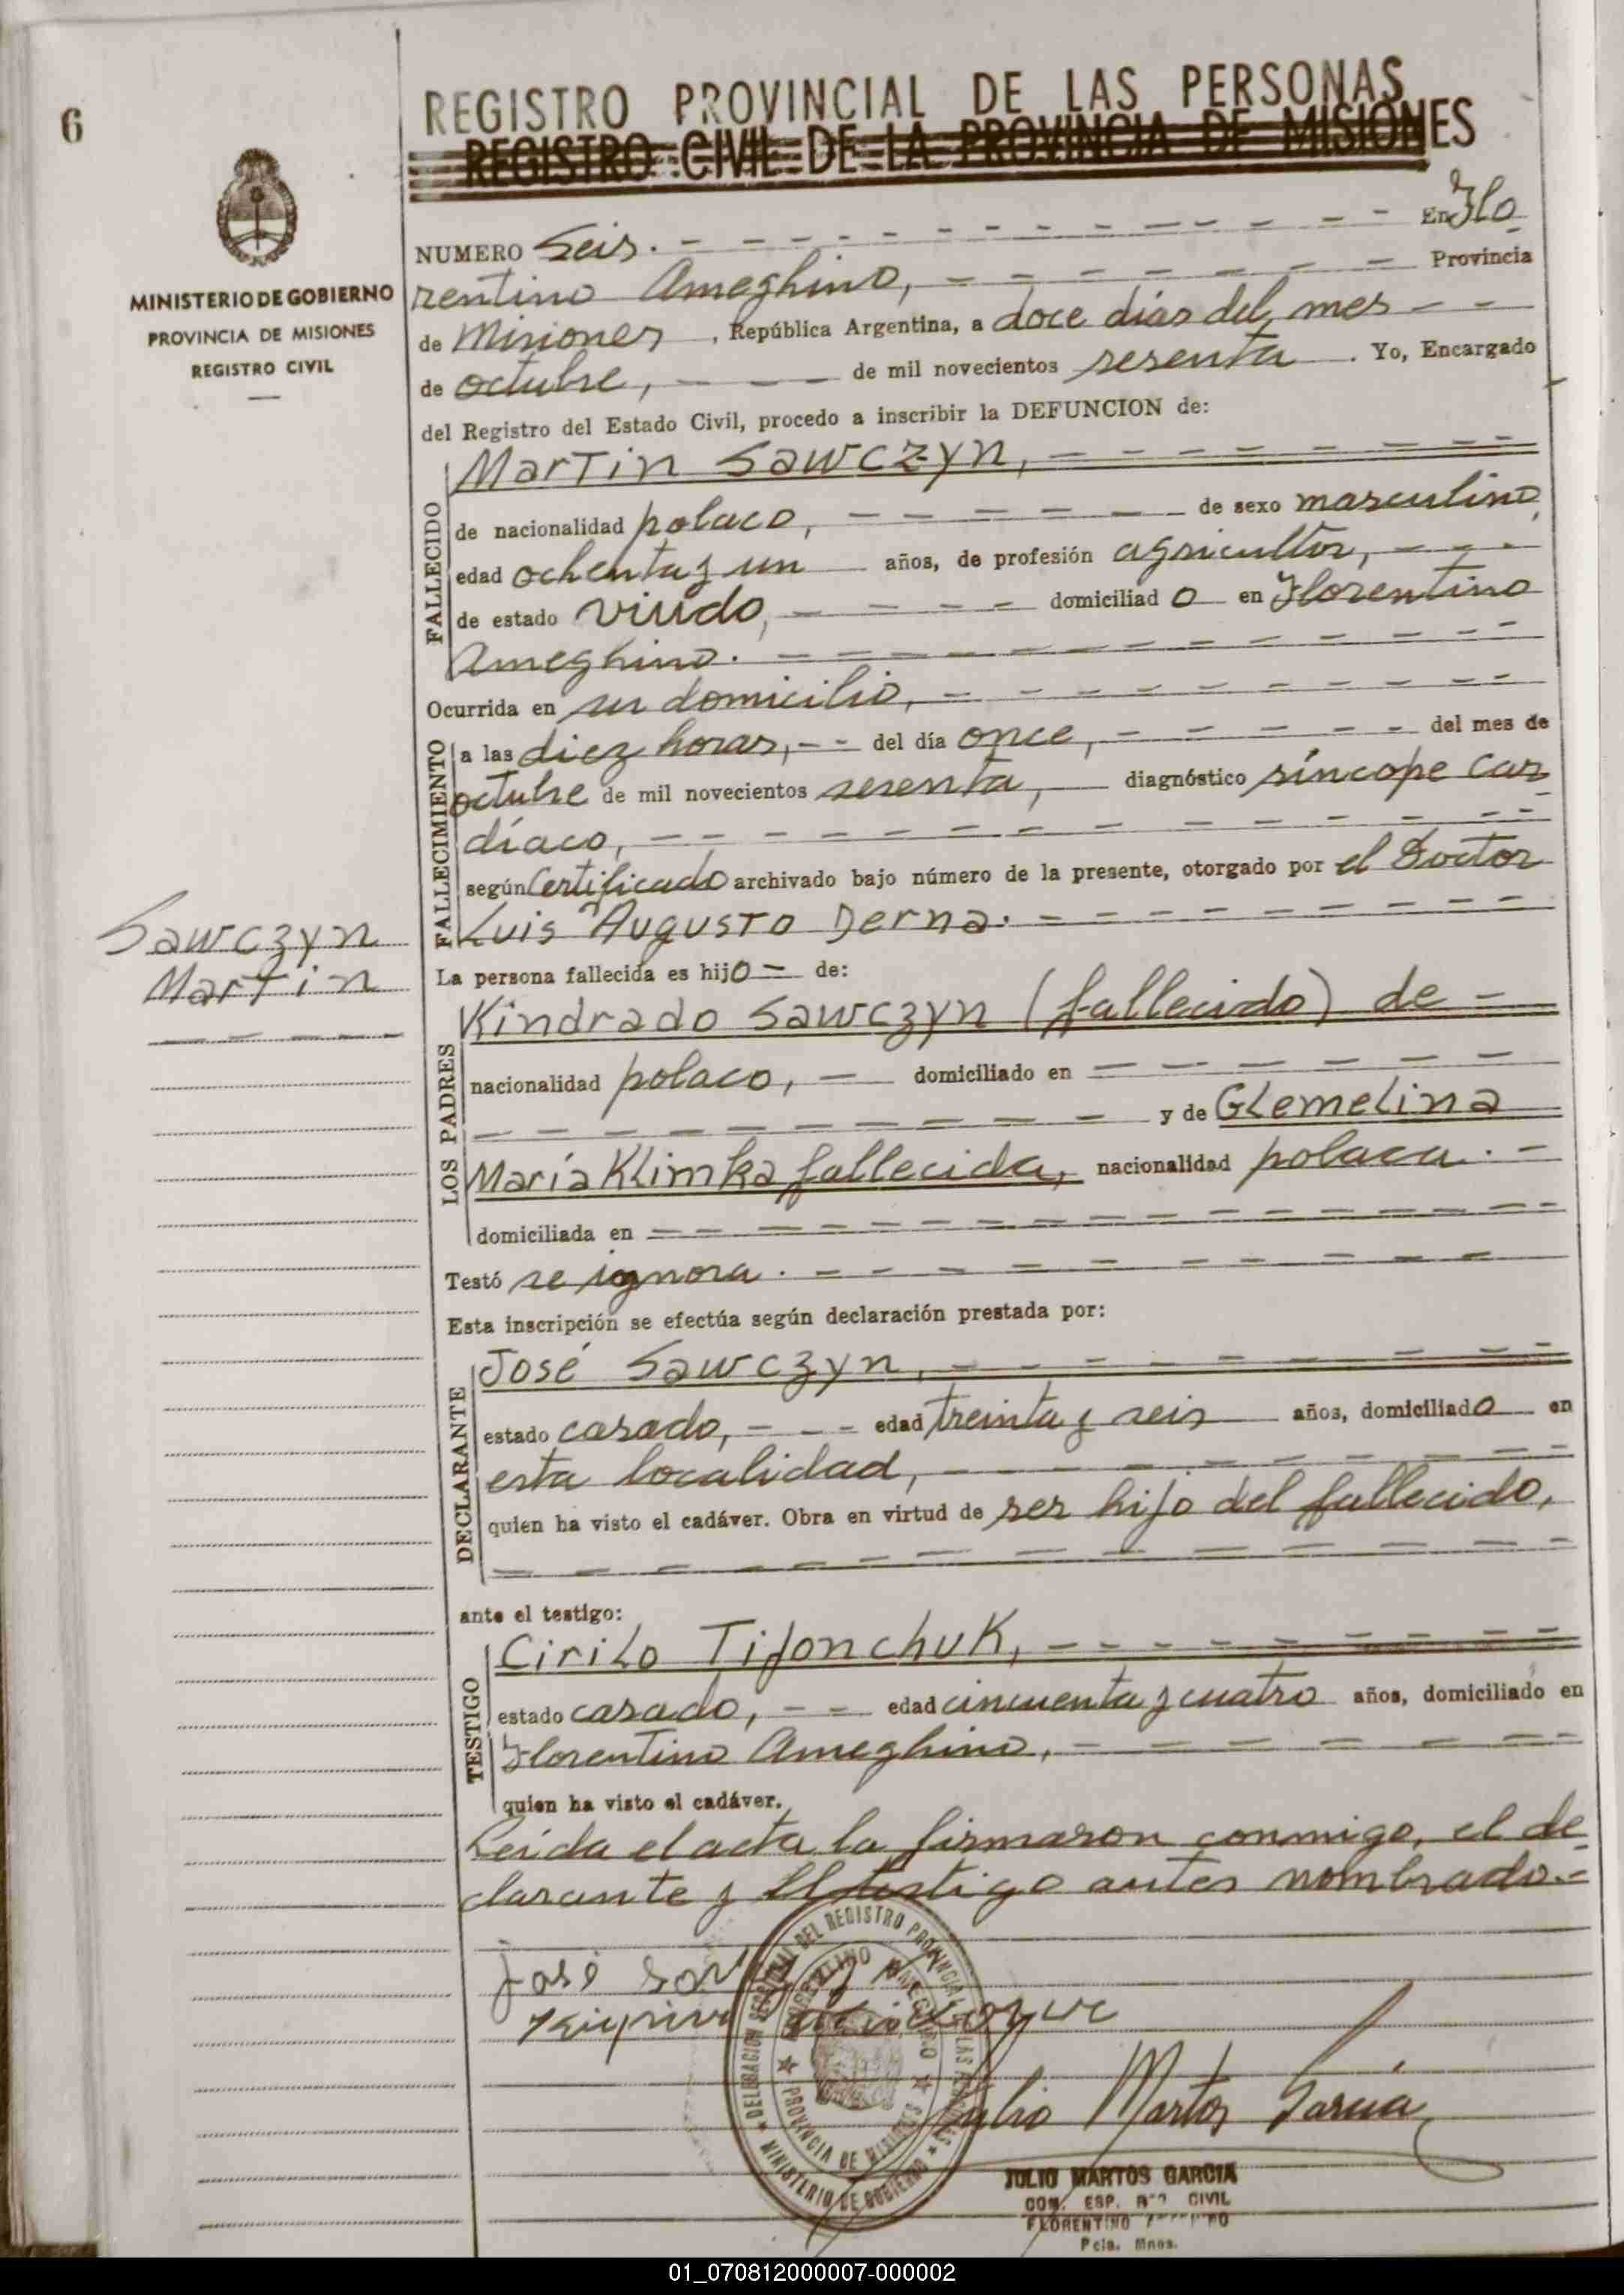 6
REGISTRO PROVINCIAL DE LAS PERSONAS
REGISTRO CIVIL DE LA PROVINCIA DE MISIONES
MINISTERIO DE GOBIERNO
PROVINCIA DE MISIONES
REGISTRO CIVIL
NUMERO Seis. En Flo
rentino Ameghino, Provincia
de Misiones, República Argentina, a doce días del mes
de octubre, de mil novecientos sesenta. Yo, Encargado
del Registro del Estado Civil, procedo a inscribir la DEFUNCION de:
FALLECIDO
Martin Sawczyn,
de nacionalidad polaco, de sexo masculino,
edad ochenta y un años, de profesión agricultor,
de estado viudo, domiciliado en Florentino
Ameghino.
Ocurrida en su domicilio,
FALLECIMIENTO
a las diez horas, del día once, del mes de
octubre de mil novecientos sesenta, diagnóstico síncope car
díaco,
según Certificado archivado bajo número de la presente, otorgado por el Doctor
Luis Augusto Derna.
Sawczyn
Martin
La persona fallecida es hijo de:
LOS PADRES
Kindrado Sawczyn (fallecido) de
nacionalidad polaco, domiciliado en
y de Glemelina
María Klimka fallecida, nacionalidad polaca.
domiciliada en
Testó se ignora.
Esta inscripción se efectúa según declaración prestada por:
DECLARANTE
José Sawczyn,
estado casado, edad treinta y seis años, domiciliado en
esta localidad,
quien ha visto el cadáver. Obra en virtud de ser hijo del fallecido,
ante el testigo:
TESTIGO
Cirilo Tijonchuk,
estado casado, edad cincuenta y cuatro años, domiciliado en
Florentino Ameghino,
quien ha visto el cadáver.
Leída el acta la firmaron conmigo, el de
clarante y el testigo antes nombrado.-
José
DELEGACION SECCIONAL DEL REGISTRO PROVINCIAL DE LAS PERSONAS
FLORENTINO AMEGHINO
PROVINCIA DE MISIONES
MINISTERIO DE GOBIERNO
Julio Martos García
JULIO MARTOS GARCIA
ESP. CIVIL
FLORENTINO
Pcia. Mnes.
01_070812000007-000002